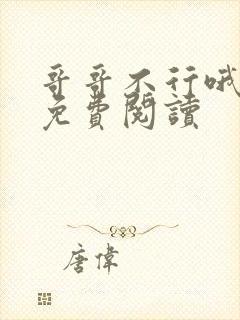 哥哥不行哦
免費閱讀
唐偉